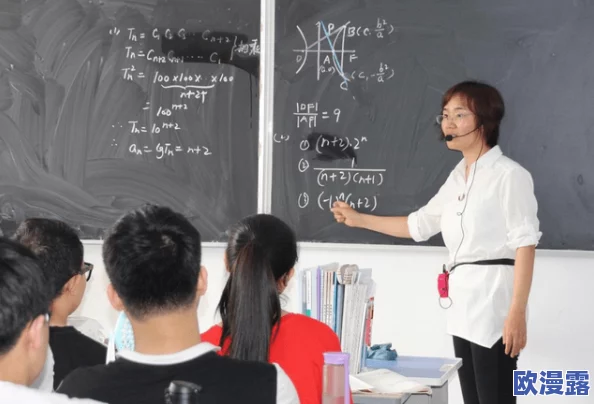 ∵ Tn = C1 C2 C3 ... Cn+2
Tn = Cn+2 Cn+1 ... C1
Tn² = 100×100× ... ×100
n+2个
= 100ⁿ⁺²
∴ Tn = 10ⁿ⁺²
∴ an = lgTn = n+2
P
B(c, b²/a)
D
A
F
(2,0)
C(c, -b²/a)
|DF|/|AF| = 9
① (n+2)·2ⁿ
② 1/(n+2)(n+1)
③ (-1)ⁿ(n+2)
欧漫露